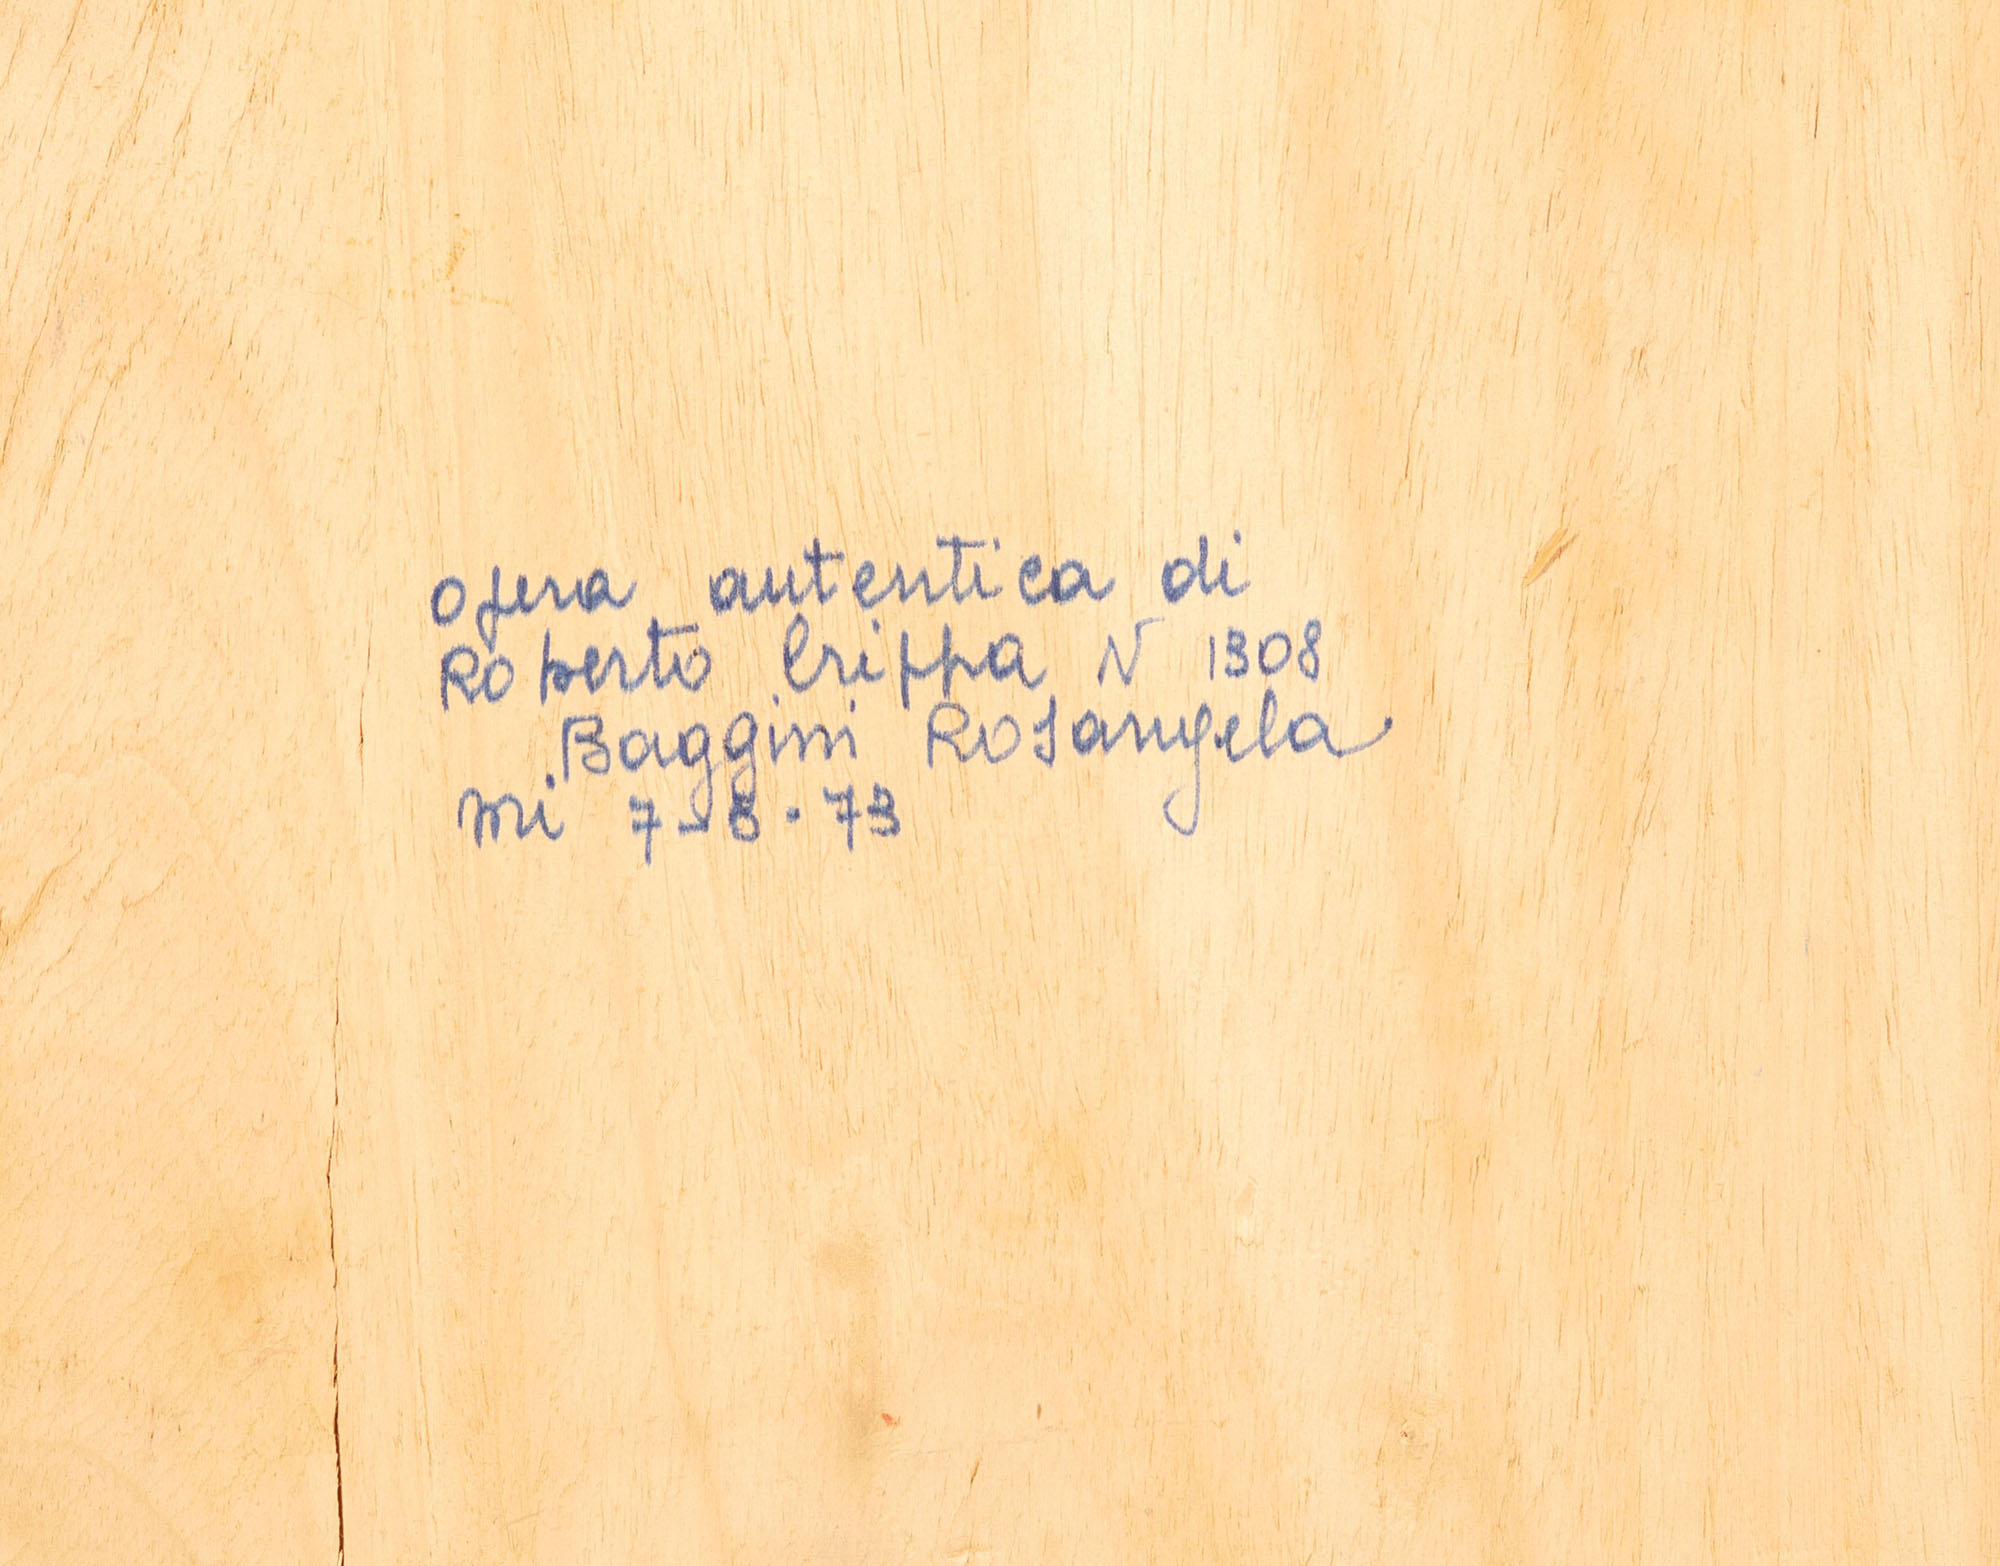 opera autentica di
Roberto Crippa N 1308
Baggini Rosangela
Mi 7-8.73